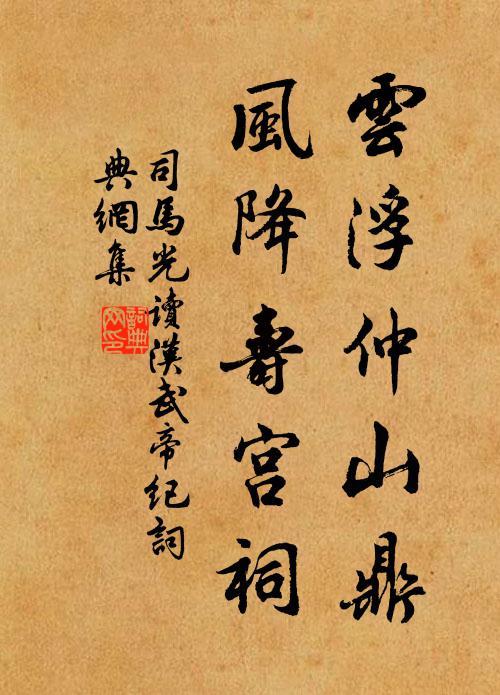 雲浮仲山鼎
風降壽宮祠
司馬光讀漢武帝紀詞
典網集
詞典
网印